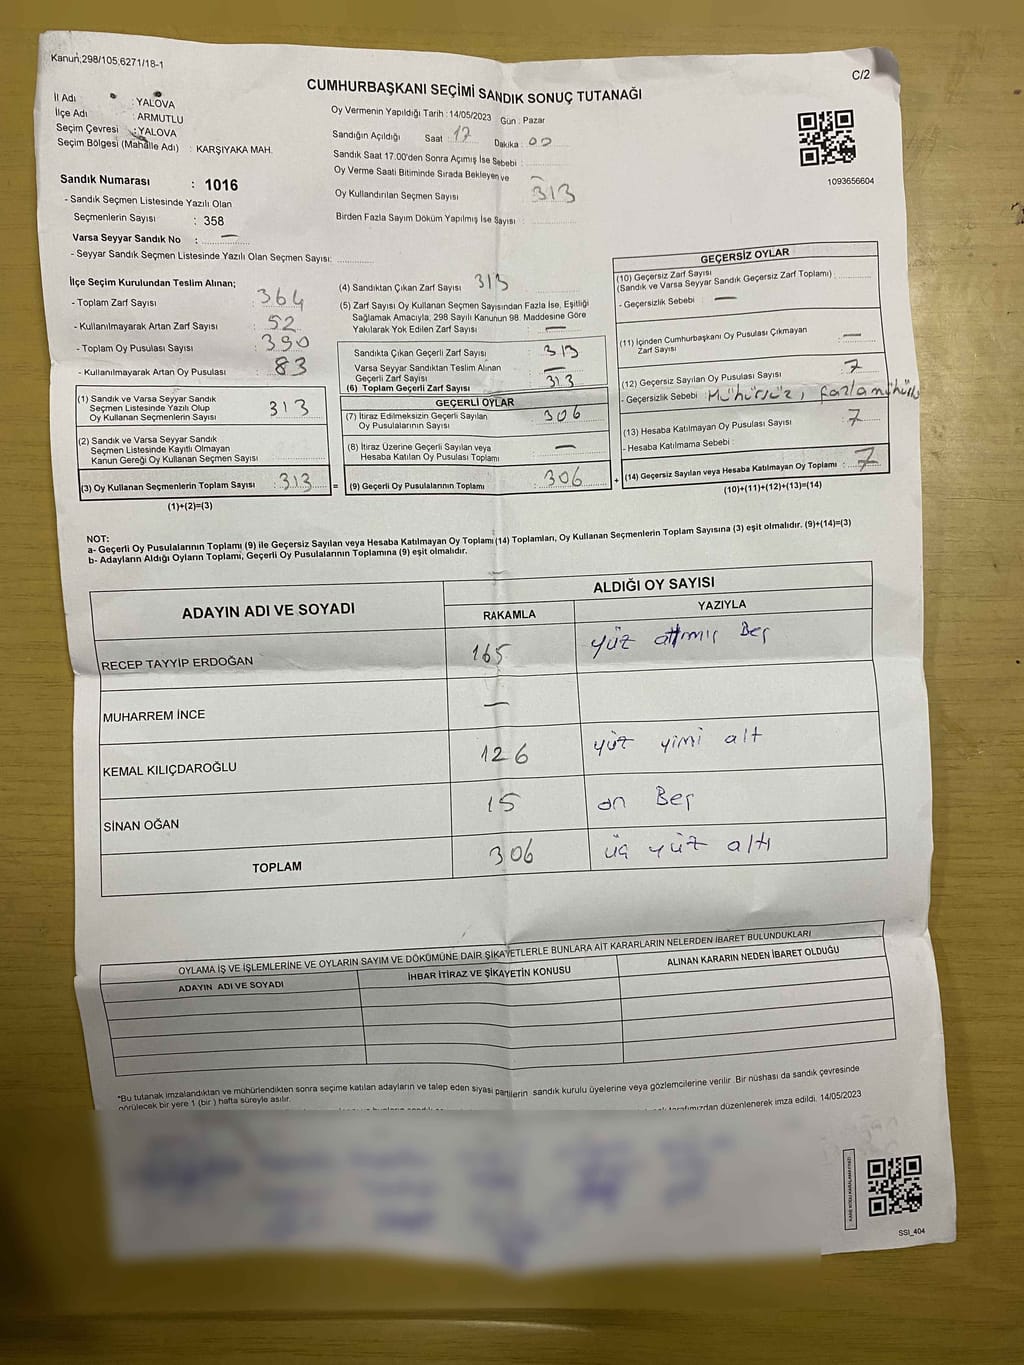 Kanun;298/105,6271/18-1
C/2
CUMHURBAŞKANI SEÇİMİ SANDIK SONUÇ TUTANAĞI
İl Adı : YALOVA
İlçe Adı : ARMUTLU
Seçim Çevresi : YALOVA
Seçim Bölgesi (Mahalle Adı) : KARŞIYAKA MAH.
Oy Vermenin Yapıldığı Tarih : 14/05/2023 Gün : Pazar
Sandığın Açıldığı Saat : 17 Dakika : 00
Sandık Saat 17.00'den Sonra Açımış İse Sebebi :
Oy Verme Saati Bitiminde Sırada Bekleyen ve
Oy Kullandırılan Seçmen Sayısı 313
Birden Fazla Sayım Döküm Yapılmış İse Sayısı :
1093656604
Sandık Numarası : 1016
- Sandık Seçmen Listesinde Yazılı Olan
Seçmenlerin Sayısı : 358
Varsa Seyyar Sandık No : —
- Seyyar Sandık Seçmen Listesinde Yazılı Olan Seçmen Sayısı:
İlçe Seçim Kurulundan Teslim Alınan;
- Toplam Zarf Sayısı : 364
- Kullanılmayarak Artan Zarf Sayısı : 52
- Toplam Oy Pusulası Sayısı : 390
- Kullanılmayarak Artan Oy Pusulası : 83
(1) Sandık ve Varsa Seyyar Sandık
Seçmen Listesinde Yazılı Olup
Oy Kullanan Seçmenlerin Sayısı : 313
(2) Sandık ve Varsa Seyyar Sandık
Seçmen Listesinde Kayıtlı Olmayan
Kanun Gereği Oy Kullanan Seçmen Sayısı :
(3) Oy Kullanan Seçmenlerin Toplam Sayısı : 313 =
(1)+(2)=(3)
(4) Sandıktan Çıkan Zarf Sayısı : 313
(5) Zarf Sayısı Oy Kullanan Seçmen Sayısından Fazla İse, Eşitliği
Sağlamak Amacıyla, 298 Sayılı Kanunun 98. Maddesine Göre
Yakılarak Yok Edilen Zarf Sayısı : —
Sandıkta Çıkan Geçerli Zarf Sayısı : 313
Varsa Seyyar Sandıktan Teslim Alınan
Geçerli Zarf Sayısı : —
(6) Toplam Geçerli Zarf Sayısı : 313
GEÇERLİ OYLAR
(7) İtiraz Edilmeksizin Geçerli Sayılan
Oy Pusulalarının Sayısı : 306
(8) İtiraz Üzerine Geçerli Sayılan veya
Hesaba Katılan Oy Pusulası Toplamı : —
(9) Geçerli Oy Pusulalarının Toplamı : 306 +
GEÇERSİZ OYLAR
(10) Geçersiz Zarf Sayısı
(Sandık ve Varsa Seyyar Sandık Geçersiz Zarf Toplamı) :
- Geçersizlik Sebebi : —
(11) İçinden Cumhurbaşkanı Oy Pusulası Çıkmayan
Zarf Sayısı : —
(12) Geçersiz Sayılan Oy Pusulası Sayısı : 7
- Geçersizlik Sebebi : Mühürsüz, fazla mühür
(13) Hesaba Katılmayan Oy Pusulası Sayısı : 7
- Hesaba Katılmama Sebebi :
(14) Geçersiz Sayılan veya Hesaba Katılmayan Oy Toplamı : 7
(10)+(11)+(12)+(13)=(14)
NOT:
a- Geçerli Oy Pusulalarının Toplamı (9) ile Geçersiz Sayılan veya Hesaba Katılmayan Oy Toplamı (14) Toplamları, Oy Kullanan Seçmenlerin Toplam Sayısına (3) eşit olmalıdır. (9)+(14)=(3)
b- Adayların Aldığı Oyların Toplamı, Geçerli Oy Pusulalarının Toplamına (9) eşit olmalıdır.
ADAYIN ADI VE SOYADI ALDIĞI OY SAYISI
RAKAMLA YAZIYLA
RECEP TAYYİP ERDOĞAN 165 yüz altmış Beş
MUHARREM İNCE —
KEMAL KILIÇDAROĞLU 126 yüz yimi alt
SİNAN OĞAN 15 on Beş
TOPLAM 306 üç yüz altı
OYLAMA İŞ VE İŞLEMLERİNE VE OYLARIN SAYIM VE DÖKÜMÜNE DAİR ŞİKAYETLERLE BUNLARA AİT KARARLARIN NELERDEN İBARET BULUNDUKLARI
ADAYIN ADI VE SOYADI İHBAR İTİRAZ VE ŞİKAYETİN KONUSU ALINAN KARARIN NEDEN İBARET OLDUĞU
*Bu tutanak imzalandıktan ve mühürlendikten sonra seçime katılan adayların ve talep eden siyasi partilerin sandık kurulu üyelerine veya gözlemcilerine verilir .Bir nüshası da sandık çevresinde
görülecek bir yere 1 (bir ) hafta süreyle asılır.
tarafımızdan düzenlenerek imza edildi. 14/05/2023
SSI_404